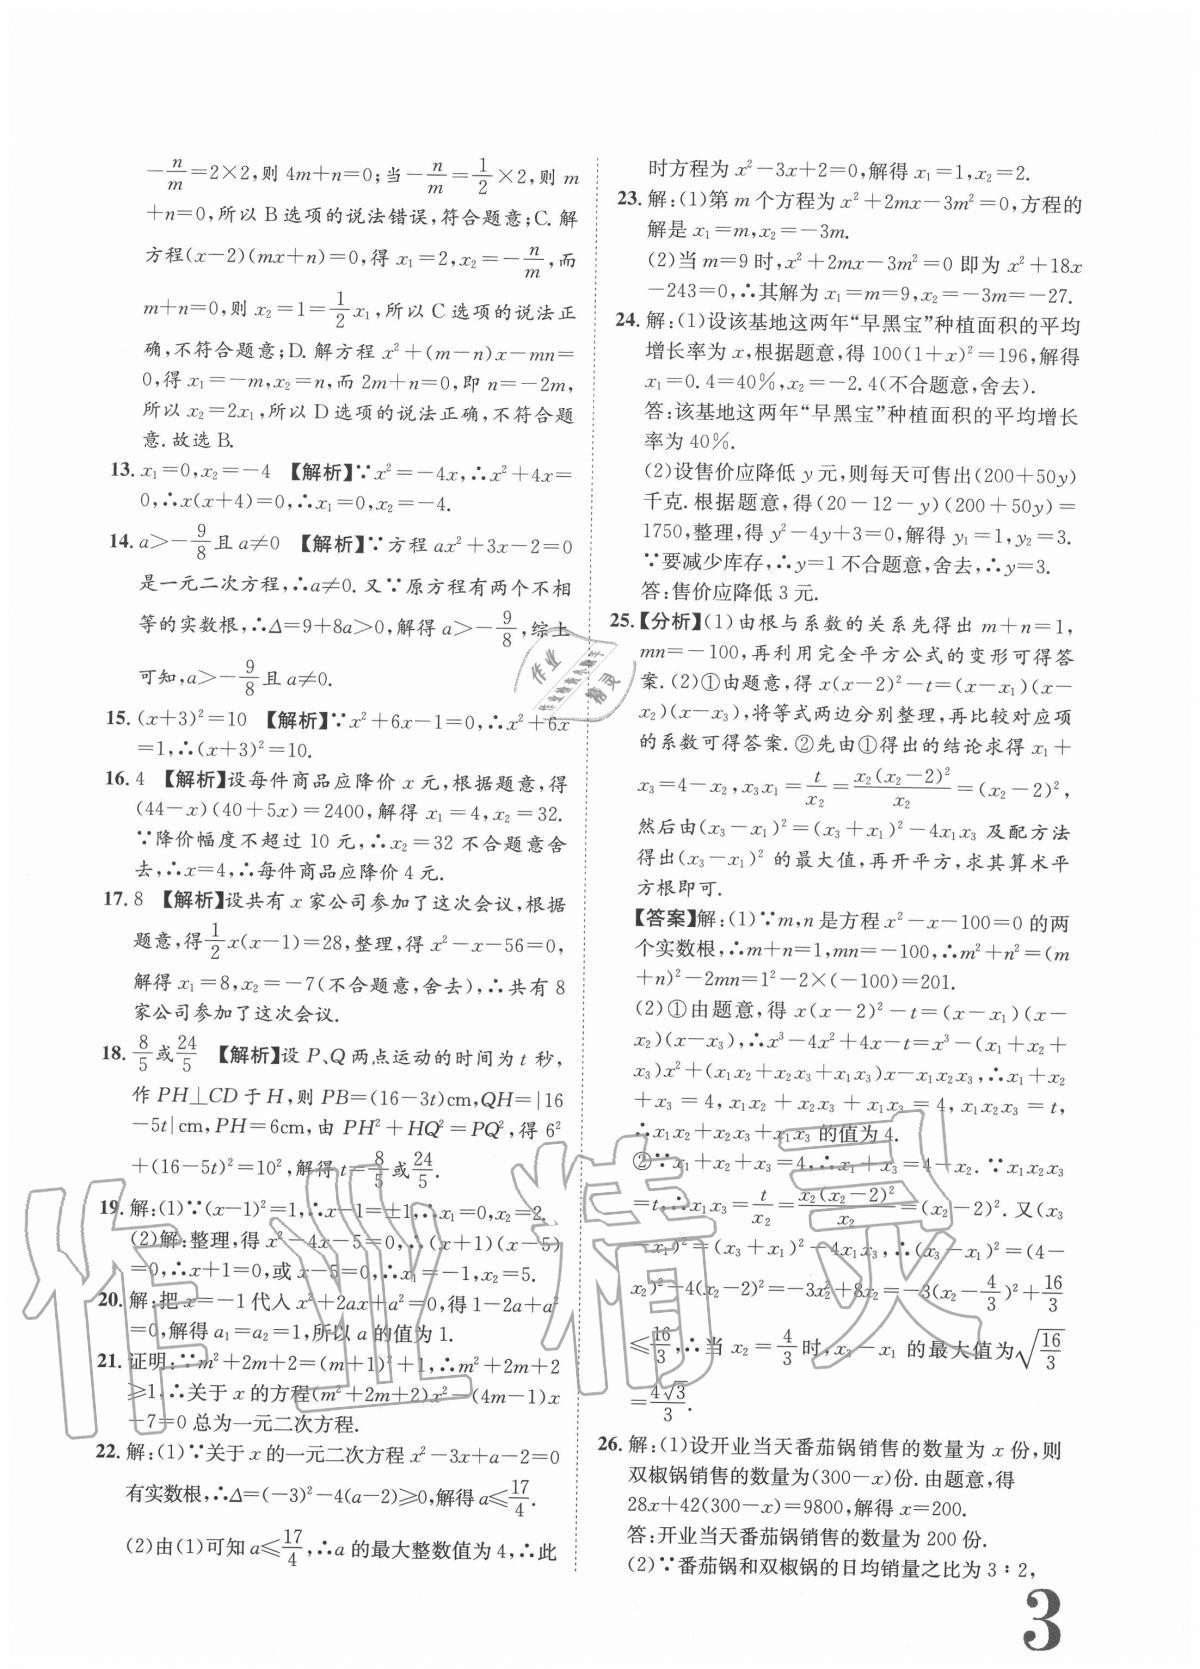 −n/m=2×2,则 4m+n=0;当−n/m=1/2×2,则 m
+n=0,所以 B 选项的说法错误,符合题意;C. 解
方程(x−2)(mx+n)=0,得 x₁=2,x₂=−n/m,而
m+n=0,则 x₂=1=1/2x₁,所以 C 选项的说法正
确,不符合题意;D. 解方程 x²+(m−n)x−mn=
0,得 x₁=−m,x₂=n,而 2m+n=0,即 n=−2m,
所以 x₂=2x₁,所以 D 选项的说法正确,不符合题
意. 故选 B.
13. x₁=0,x₂=−4 【解析】∵x²=−4x,∴x²+4x=
0,∴x(x+4)=0,∴x₁=0,x₂=−4.
14. a>−9/8且 a≠0 【解析】∵方程 ax²+3x−2=0
是一元二次方程,∴a≠0. 又∵原方程有两个不相
等的实数根,∴Δ=9+8a>0,解得 a>−9/8,综上
可知,a>−9/8且 a≠0.
15. (x+3)²=10 【解析】∵x²+6x−1=0,∴x²+6x
=1,∴(x+3)²=10.
16. 4 【解析】设每件商品应降价 x 元,根据题意,得
(44−x)(40+5x)=2400,解得 x₁=4,x₂=32.
∵降价幅度不超过 10 元,∴x₂=32 不合题意舍
去,∴x=4,∴每件商品应降价 4 元.
17. 8 【解析】设共有 x 家公司参加了这次会议,根据
题意,得1/2x(x−1)=28,整理,得 x²−x−56=0,
解得 x₁=8,x₂=−7(不合题意,舍去),∴共有 8
家公司参加了这次会议.
18. 8/5或24/5 【解析】设 P、Q 两点运动的时间为 t 秒,
作 PH⊥CD 于 H,则 PB=(16−3t)cm,QH=|16
−5t|cm,PH=6cm,由 PH²+HQ²=PQ²,得 6²
+(16−5t)²=10²,解得 t=8/5或24/5.
19. 解:(1)∵(x−1)²=1,∴x−1=±1,∴x₁=0,x₂=2.
(2)解:整理,得 x²−4x−5=0,∴(x+1)(x−5)
=0,∴x+1=0,或 x−5=0,∴x₁=−1,x₂=5.
20. 解:把 x=−1 代入 x²+2ax+a²=0,得 1−2a+a²
=0,解得 a₁=a₂=1,所以 a 的值为 1.
21. 证明:∵m²+2m+2=(m+1)²+1,∴m²+2m+2
≥1,∴关于 x 的方程(m²+2m+2)x²−(4m−1)x
−7=0 总为一元二次方程.
22. 解:(1)∵关于 x 的一元二次方程 x²−3x+a−2=0
有实数根,∴Δ=(−3)²−4(a−2)≥0,解得 a≤17/4.
(2)由(1)可知 a≤17/4,∴a 的最大整数值为 4,∴此
时方程为 x²−3x+2=0,解得 x₁=1,x₂=2.
23. 解:(1)第 m 个方程为 x²+2mx−3m²=0,方程的
解是 x₁=m,x₂=−3m.
(2)当 m=9 时,x²+2mx−3m²=0 即为 x²+18x
−243=0,∴其解为 x₁=m=9,x₂=−3m=−27.
24. 解:(1)设该基地这两年“早黑宝”种植面积的平均
增长率为 x,根据题意,得 100(1+x)²=196,解得
x₁=0.4=40%,x₂=−2.4(不合题意,舍去).
答:该基地这两年“早黑宝”种植面积的平均增长
率为 40%.
(2)设售价应降低 y 元,则每天可售出(200+50y)
千克. 根据题意,得(20−12−y)(200+50y)=
1750,整理,得 y²−4y+3=0,解得 y₁=1,y₂=3.
∵要减少库存,∴y=1 不合题意,舍去,∴y=3.
答:售价应降低 3 元.
25.【分析】(1)由根与系数的关系先得出 m+n=1,
mn=−100,再利用完全平方公式的变形可得答
案. (2)①由题意,得 x(x−2)²−t=(x−x₁)(x−
x₂)(x−x₃),将等式两边分别整理,再比较对应项
的系数可得答案. ②先由①得出的结论求得 x₁+
x₃=4−x₂,x₃x₁=t/x₂=x₂(x₂−2)²/x₂=(x₂−2)²,
然后由(x₃−x₁)²=(x₃+x₁)²−4x₁x₃ 及配方法
得出(x₃−x₁)² 的最大值,再开平方,求其算术平
方根即可.
【答案】解:(1)∵m,n 是方程 x²−x−100=0 的两
个实数根,∴m+n=1,mn=−100,∴m²+n²=(m
+n)²−2mn=1²−2×(−100)=201.
(2)①由题意,得 x(x−2)²−t=(x−x₁)(x−
x₂)(x−x₃),∴x³−4x²+4x−t=x³−(x₁+x₂+
x₃)x²+(x₁x₂+x₂x₃+x₁x₃)x−x₁x₂x₃,∴x₁+x₂
+x₃=4,x₁x₂+x₂x₃+x₁x₃=4,x₁x₂x₃=t,
∴x₁x₂+x₂x₃+x₁x₃ 的值为 4.
②∵x₁+x₂+x₃=4,∴x₁+x₃=4−x₂. ∵x₁x₂x₃
=t,∴x₁x₃=t/x₂=x₂(x₂−2)²/x₂=(x₂−2)². 又(x₃
−x₁)²=(x₃+x₁)²−4x₁x₃,∴(x₃−x₁)²=(4−
x₂)²−4(x₂−2)²=−3x₂²+8x₂=−3(x₂−4/3)²+16/3
≤16/3,∴当 x₂=4/3时,x₃−x₁ 的最大值为√(16/3)
=4√3/3.
26. 解:(1)设开业当天番茄锅销售的数量为 x 份,则
双椒锅销售的数量为(300−x)份. 由题意,得
28x+42(300−x)=9800,解得 x=200.
答:开业当天番茄锅销售的数量为 200 份.
(2)∵番茄锅和双椒锅的日均销量之比为 3∶2,
3
作业精灵